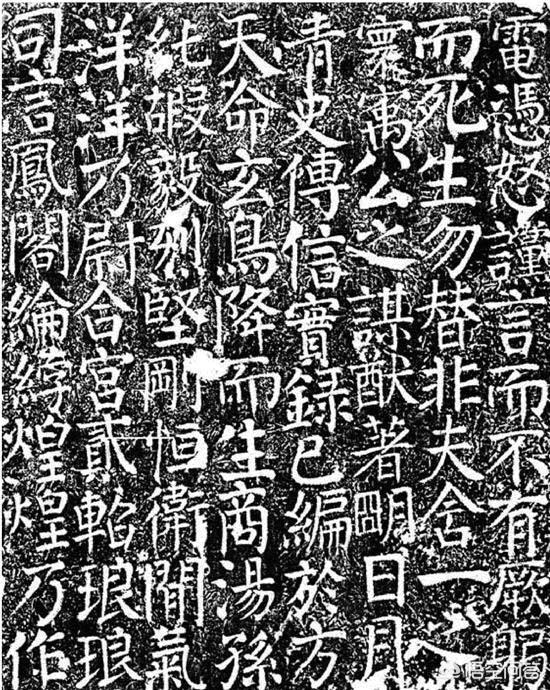 電憑怒謹言而不有厥躬
而死生勿替非夫舍一
寰寓公之謀猷著明日月
青史傳信實錄已編於方
天命玄鳥降而生商湯孫
純嘏毅烈堅剛恒衛間氣
洋洋乃尉合宮貳軺琅琅
司言鳳閣綸綍煌煌乃作
@悟空问答